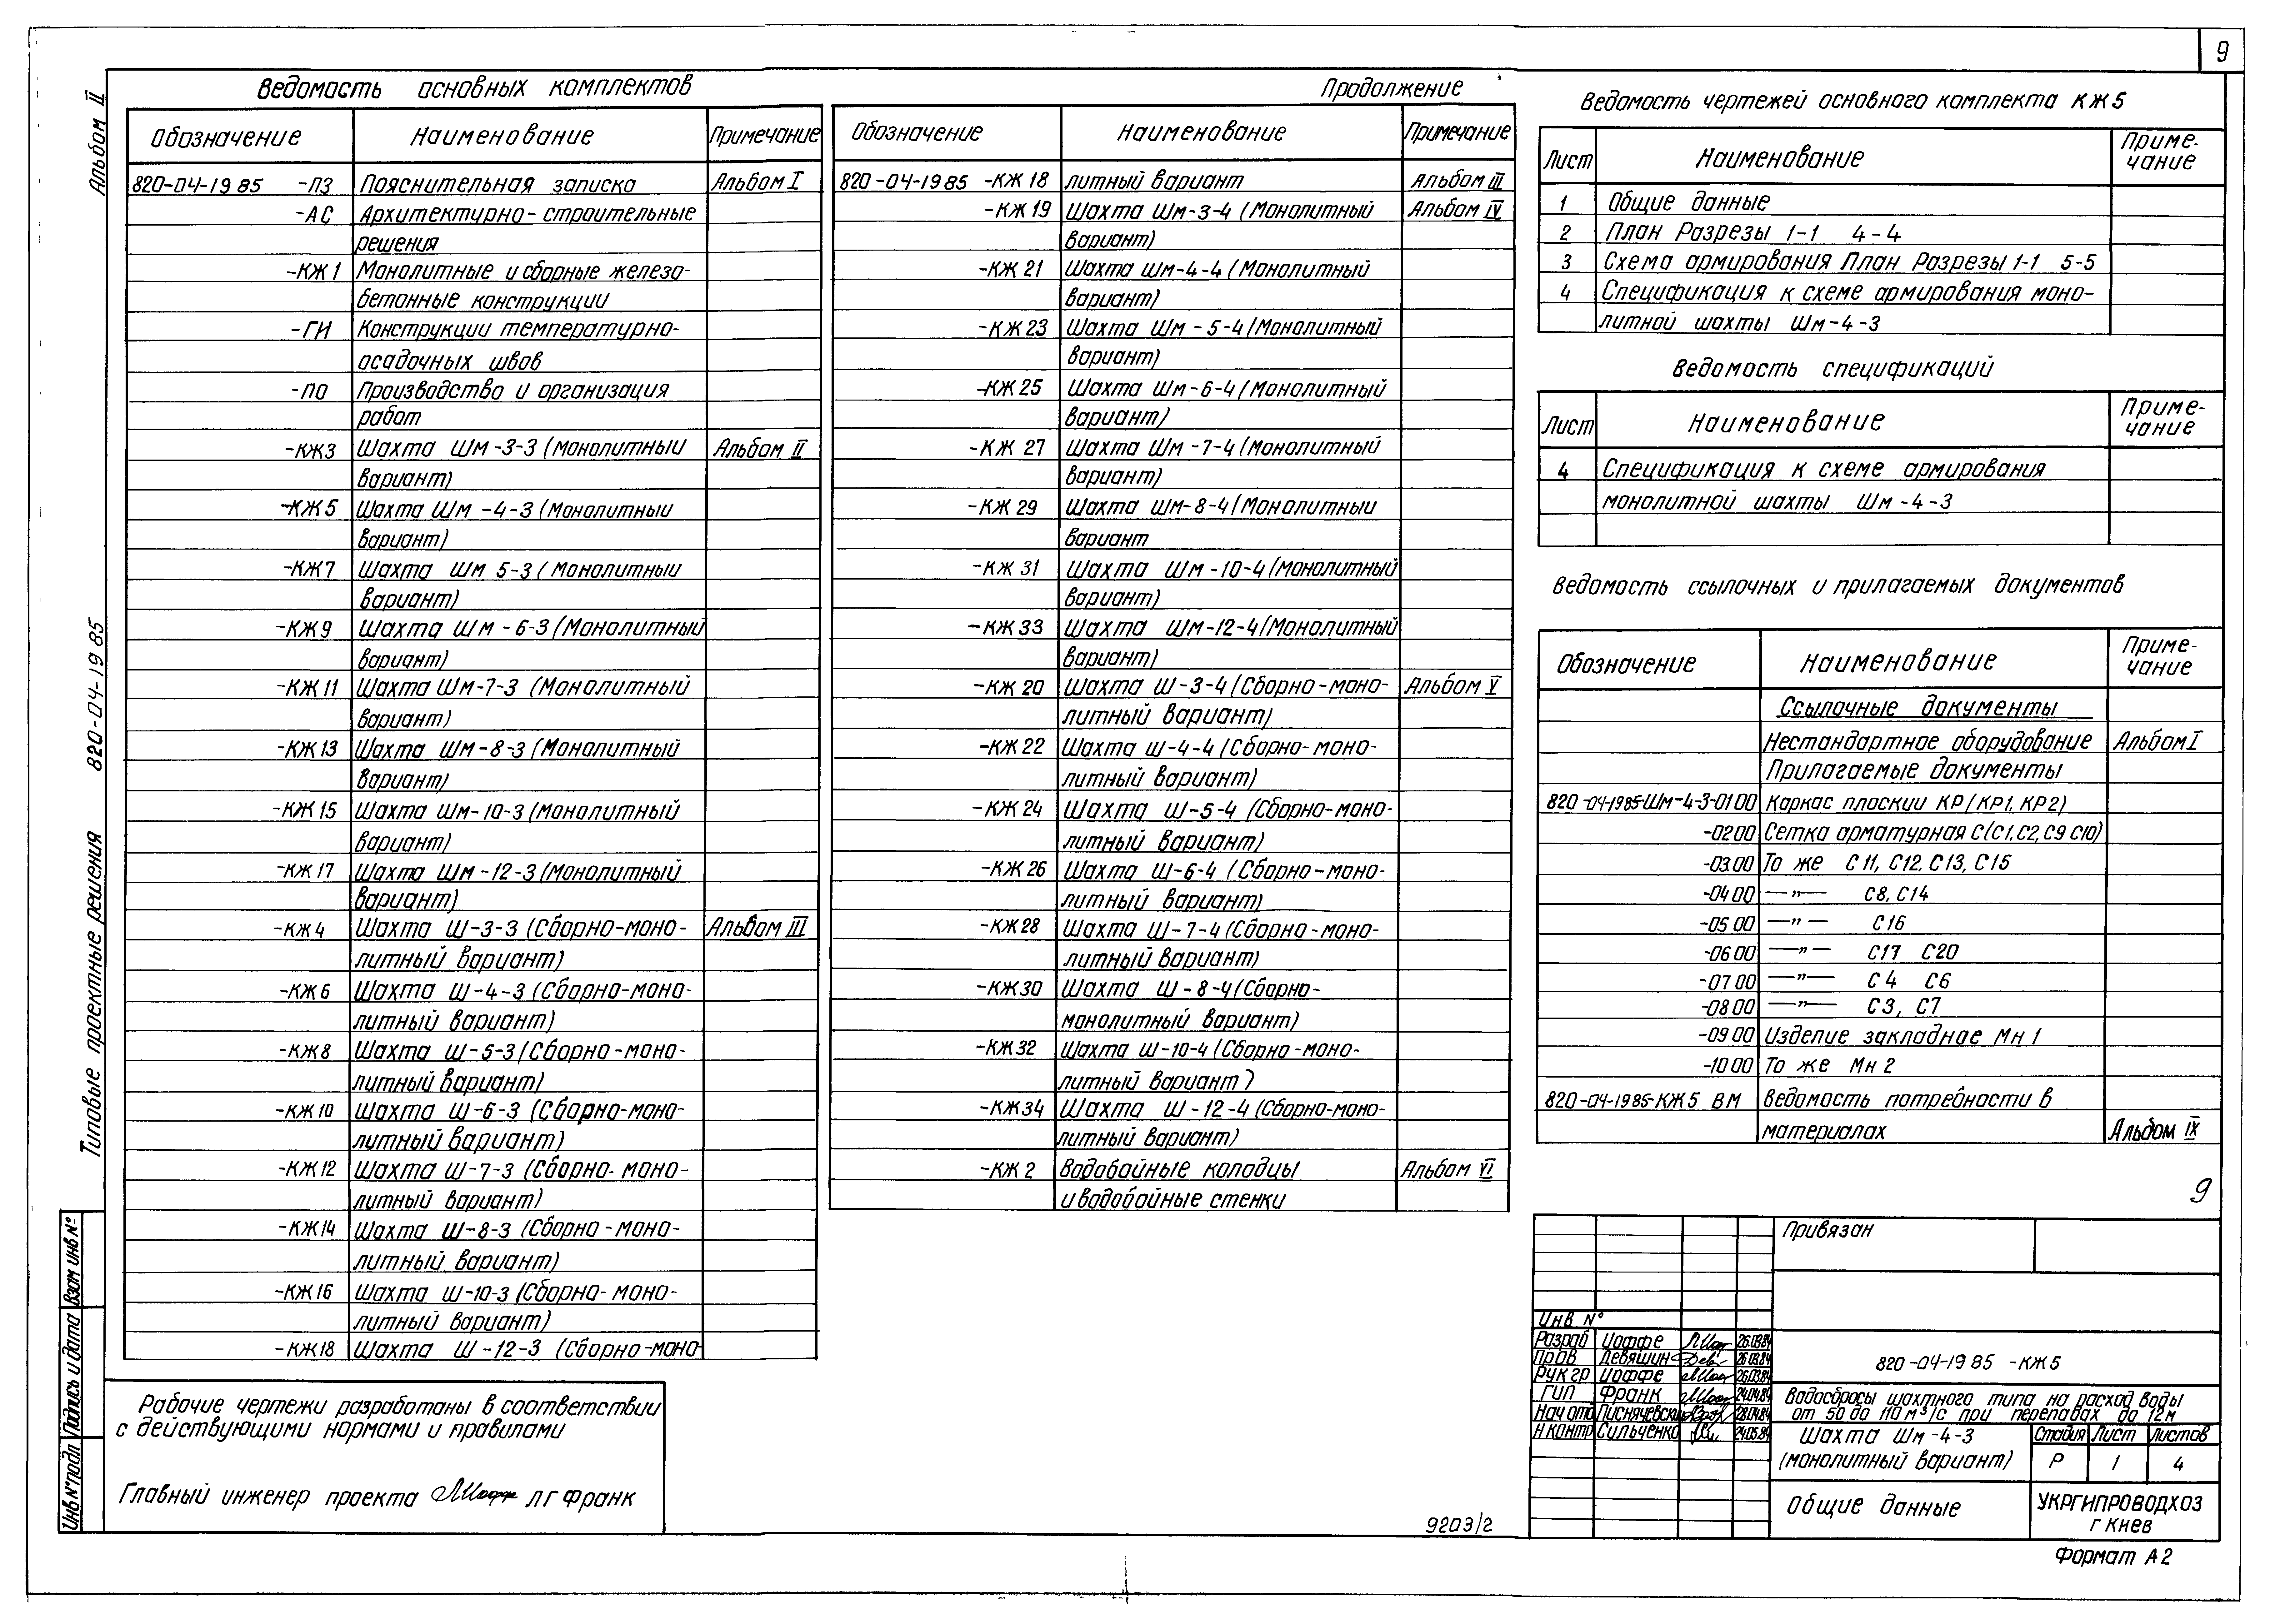 9
Альбом II
Типовые проектные решения 820-04-19 85
Ведомость основных комплектов
Обозначение Наименование Примечание
820-04-19 85 -ПЗ Пояснительная записка Альбом I
-АС Архитектурно-строительные
решения
-КЖ 1 Монолитные и сборные железо-
бетонные конструкции
-ГИ Конструкции температурно-
осадочных швов
-ПО Производство и организация
работ
-КЖ3 Шахта Шм-3-3 (монолитный Альбом II
вариант)
-КЖ 5 Шахта Шм-4-3 (Монолитный
вариант)
-КЖ7 Шахта Шм 5-3 (Монолитный
вариант)
-КЖ 9 Шахта Шм-6-3 (Монолитный
вариант)
-КЖ 11 Шахта Шм-7-3 (Монолитный
вариант)
-КЖ 13 Шахта Шм-8-3 (Монолитный
вариант)
-КЖ 15 Шахта Шм-10-3 (Монолитный
вариант)
-КЖ 17 Шахта Шм-12-3 (Монолитный
вариант)
-КЖ 4 Шахта Ш-3-3 (Сборно-моно- Альбом III
литный вариант)
-КЖ 6 Шахта Ш-4-3 (Сборно-моно-
литный вариант)
-КЖ8 Шахта Ш-5-3 (Сборно-моно-
литный вариант)
-КЖ 10 Шахта Ш-6-3 (Сборно-моно-
литный вариант)
-КЖ 12 Шахта Ш-7-3 (Сборно-моно-
литный вариант)
-КЖ14 Шахта Ш-8-3 (Сборно-моно-
литный вариант)
-КЖ 16 Шахта Ш-10-3 (Сборно-моно-
литный вариант)
-КЖ18 Шахта Ш-12-3 (Сборно-моно
Продолжение
Обозначение Наименование Примечание
820-04-19 85 -КЖ 18 литный вариант Альбом III
-КЖ 19 Шахта Шм-3-4 (Монолитный Альбом IV
вариант)
-КЖ 21 Шахта Шм-4-4 (Монолитный
вариант)
-КЖ 23 Шахта Шм-5-4 (Монолитный
вариант)
-КЖ 25 Шахта Шм-6-4 (Монолитный
вариант)
-КЖ 27 Шахта Шм-7-4 (Монолитный
вариант)
-КЖ 29 Шахта Шм-8-4 (Монолитный
вариант
-КЖ 31 Шахта Шм-10-4 (Монолитный
вариант)
-КЖ 33 Шахта Шм-12-4 (Монолитный
вариант)
-КЖ 20 Шахта Ш-3-4 (Сборно-моно- Альбом V
литный вариант)
-КЖ 22 Шахта Ш-4-4 (Сборно-моно-
литный вариант)
-КЖ 24 Шахта Ш-5-4 (Сборно-моно-
литный вариант)
-КЖ 26 Шахта Ш-6-4 (Сборно-моно-
литный вариант)
-КЖ28 Шахта Ш-7-4 (Сборно-моно-
литный вариант)
-КЖ30 Шахта Ш-8-4 (Сборно-
монолитный вариант)
-КЖ32 Шахта Ш-10-4 (Сборно-моно-
литный вариант)
-КЖ34 Шахта Ш-12-4 (Сборно-моно-
литный вариант)
-КЖ 2 Водобойные колодцы Альбом VI
и водобойные стенки
Ведомость чертежей основного комплекта КЖ5
Лист Наименование Приме-
чание
1 Общие данные
2 План Разрезы 1-1 4-4
3 Схема армирования План Разрезы 1-1 5-5
4 Спецификация к схеме армирования моно-
литной шахты Шм-4-3
Ведомость спецификаций
Лист Наименование Приме-
чание
4 Спецификация к схеме армирования
монолитной шахты Шм-4-3
Ведомость ссылочных и прилагаемых документов
Обозначение Наименование Приме-
чание
Ссылочные документы
Нестандартное оборудование Альбом I
Прилагаемые документы
820-04-1985-Шм-4-3-01 00 Каркас плоский КР (КР1, КР2)
-02 00 Сетка арматурная С (С1, С2, С9 С10)
-03 00 То же С 11, С12, С 13, С 15
-04 00 —"— С8, С14
-05 00 —"— С 16
-06 00 —"— С17 С20
-07 00 —"— С 4 С6
-08 00 —"— С 3, С7
-09 00 Изделие закладное Мн 1
-10 00 То же Мн 2
820-04-1985-КЖ5 ВМ Ведомость потребности в
материалах Альбом IX
9
Привязан
Инв N°
Разраб Иоффе 26.03.84
Пров Девяшин 26.03.84
Рук гр Иоффе 26.03.84
ГИП Франк 24.04.84
Нач отд Писнячевский 28.04.84
Н контр Сильченко 24.05.84
820-04-19 85 -КЖ5
Водосбросы шахтного типа на расход воды
от 50 до 110 м³/с при перепадах до 12м
Шахта Шм-4-3
(монолитный вариант)
Стадия Лист Листов
Р 1 4
Общие данные
УКРГИПРОВОДХОЗ
г Киев
Формат А2
9203/2
Рабочие чертежи разработаны в соответствии
с действующими нормами и правилами
Главный инженер проекта Л Г Франк
Инв N° подл Подпись и дата Взам инв N°